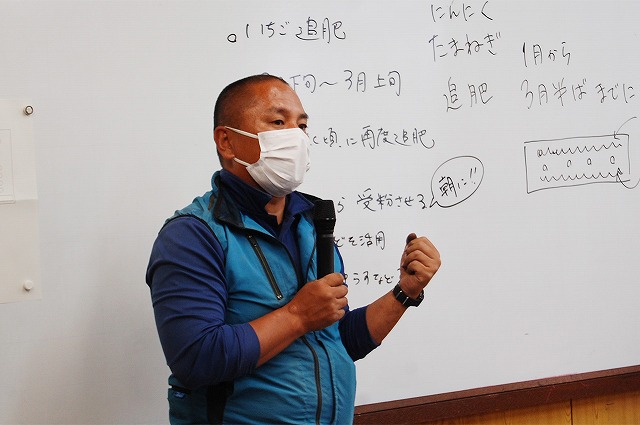 。いちご追肥
下旬〜3月上旬
頃に再度追肥
受粉させる
朝に!!
どを活用
など
にんにく
たまねぎ
追肥
1月から
3月半ばまでに